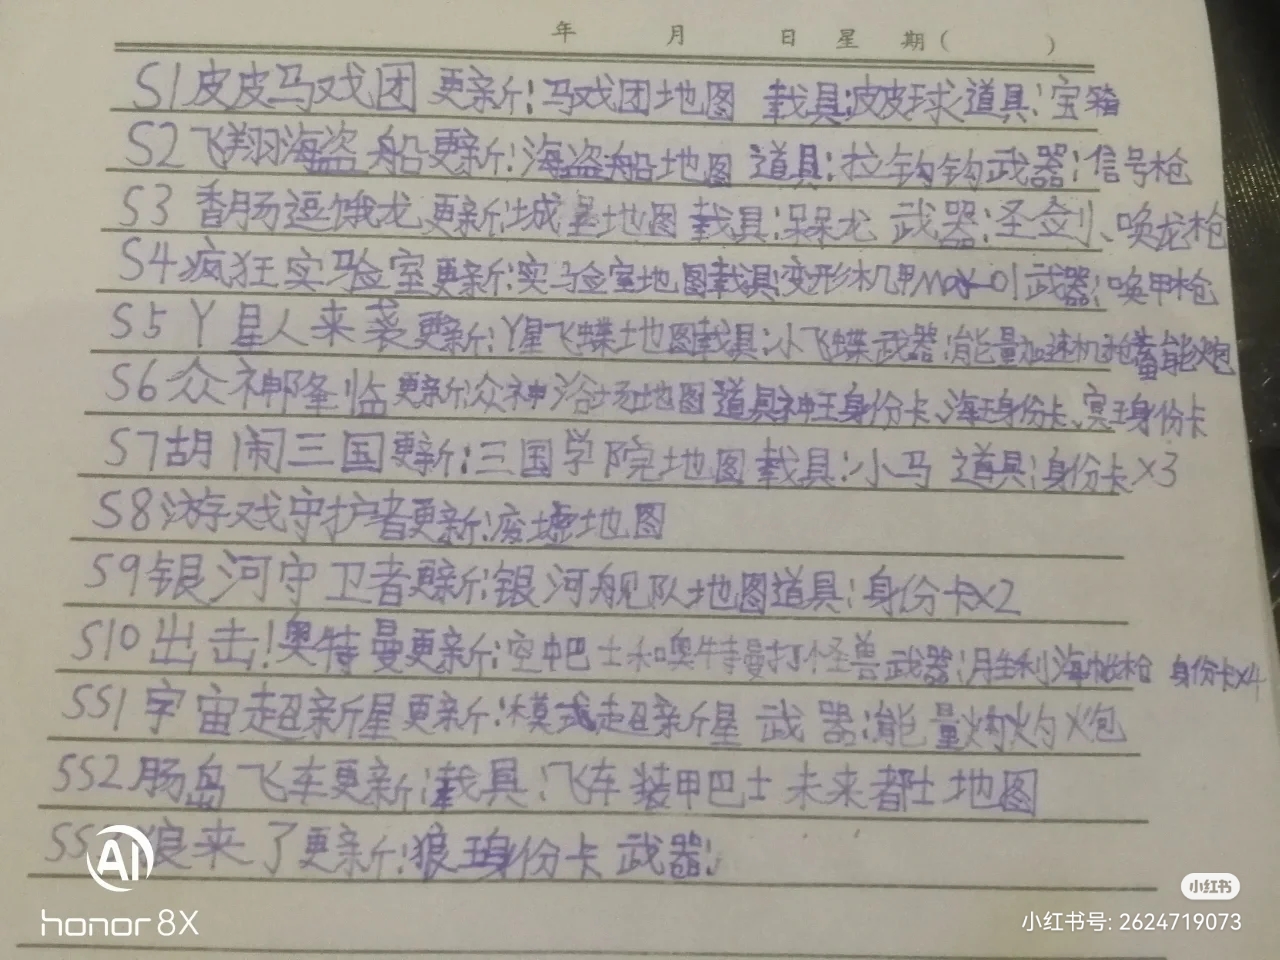 年 月 日 星 期( )
S1皮皮马戏团 更新:马戏团地图 载具:皮皮球道具:宝箱
S2飞翔海盗船更新:海盗船地图 道具:拉钩钩武器:信号枪
S3香肠逗饿龙更新:城堡地图载具:呆呆龙 武器:圣剑、唤龙枪
S4疯狂实验室更新:实验室地图载具:变形机甲max-01武器:唤甲枪
S5丫星人来袭更新:丫星飞蝶地图载具:小飞蝶武器:能量加速机枪蓄能炮
S6众神降临更新:众神浴场地图道具神王身份卡、海王身份卡、冥王身份卡
S7胡闹三国更新:三国学院地图载具:小马 道具:身份卡X3
S8游戏守护者更新:废墟地图
S9银河守卫者更新:银河舰队地图道具:身份卡X2
S10出击!奥特曼更新:空中巴士和噢特曼打怪兽武器:胜利海帕枪 身份卡X4
SS1宇宙超新星更新:模式超新星武器:能量灼灼炮
SS2肠岛飞车更新:载具:飞车装甲巴士未来都士地图
狼来了更新:狼王身份卡武器:
AI
honor 8X
小红书
小红书号: 2624719073